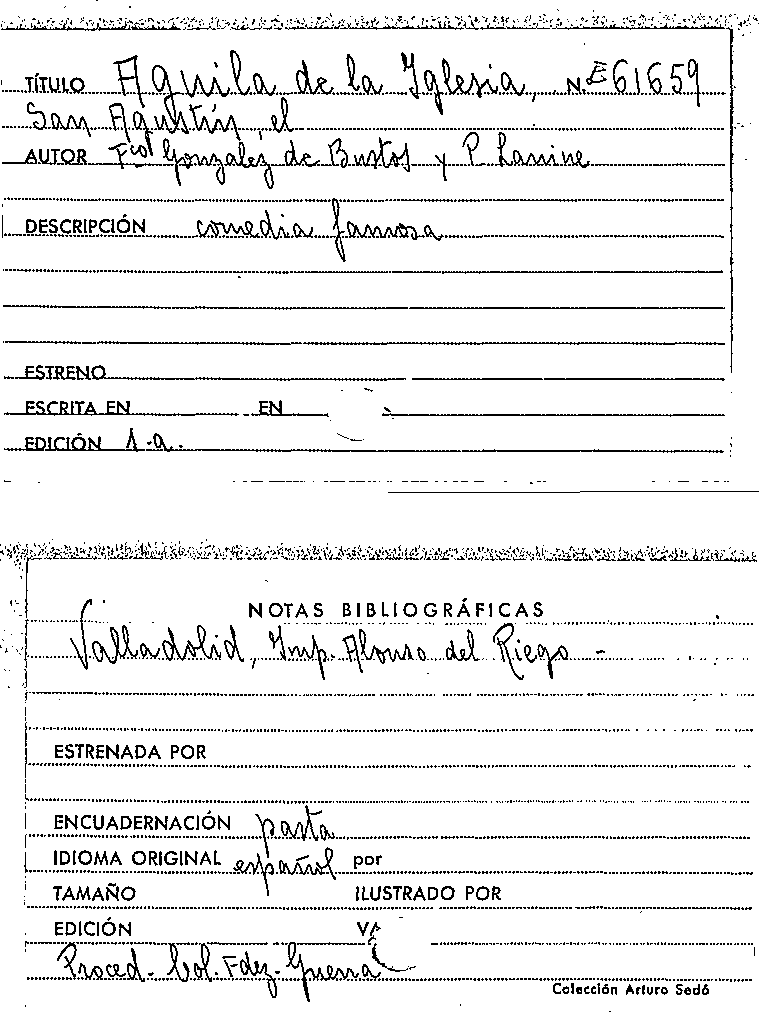 TÍTULO Aguila de la Iglesia, N.E61659
San Agustín, el
AUTOR Fco Gonzalez de Bustos y P. Lanine
DESCRIPCIÓN comedia famosa
ESTRENO
ESCRITA EN EN
EDICIÓN 1.a.
NOTAS BIBLIOGRÁFICAS
Valladolid, Imp. Alonso del Riego -
ESTRENADA POR
ENCUADERNACIÓN pasta
IDIOMA ORIGINAL español por
TAMAÑO ILUSTRADO POR
EDICIÓN
Proced. Col. Fdez-Guerra
Colección Arturo Sedó